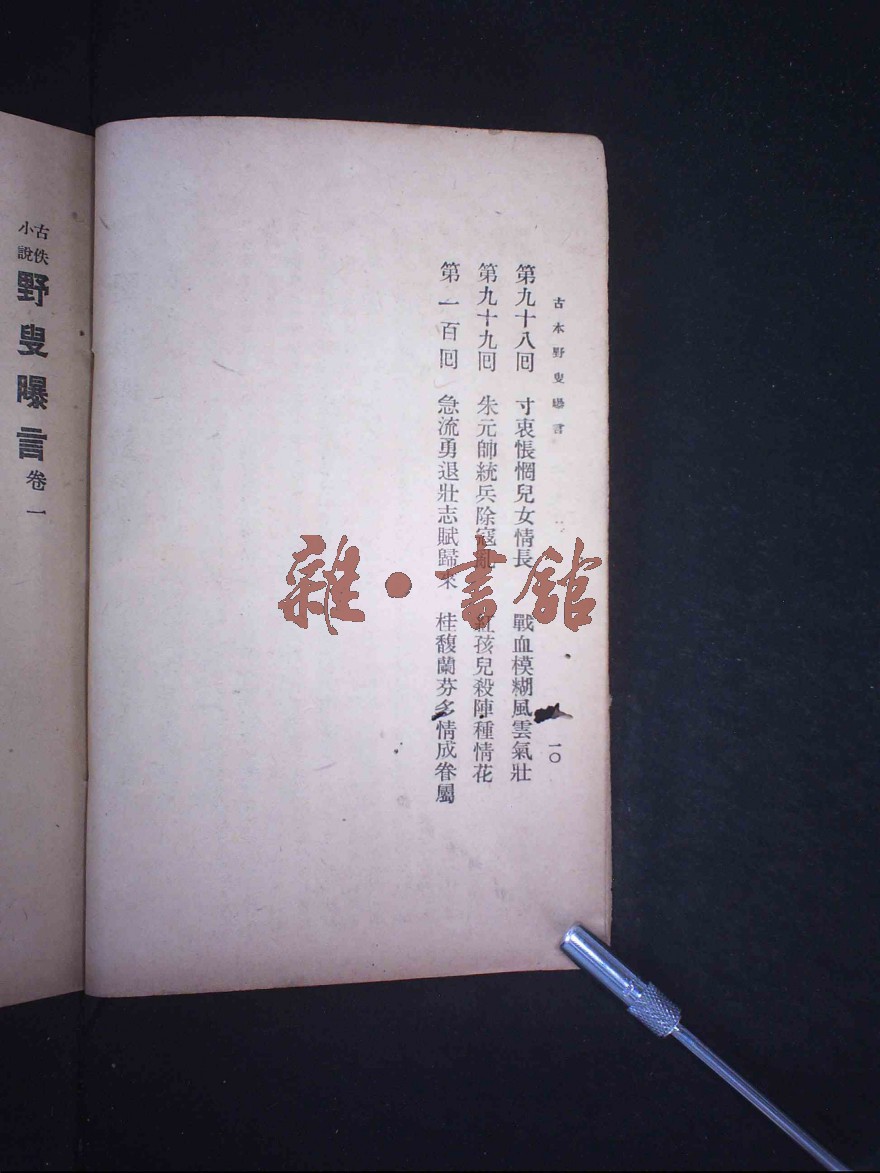 古本野叟曝言
第九十八囘 寸衷悵惘兒女情長 戰血模糊風雲氣壯
第九十九囘 朱元帥統兵除寇亂 紅孩兒殺陣種情花
第一百囘 急流勇退壯志賦歸來 桂馥蘭芬多情成眷屬
一〇
古佚小說
野叟曝言
卷一
雜·書館